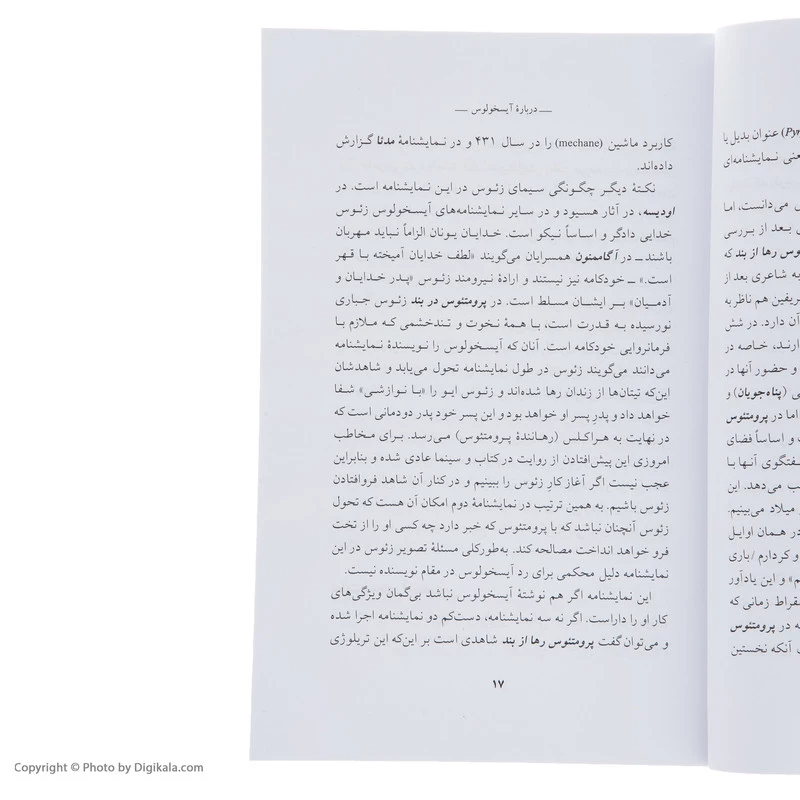 ــ دربارهٔ آیسخولوس ــ
کاربرد ماشین (mechane) را در سال ۴۳۱ و در نمایشنامهٔ مدئا گزارش
داده‌اند.
نکتهٔ دیگر چگونگی سیمای زئوس در این نمایشنامه است. در
اودیسه، در آثار هسیود و در سایر نمایشنامه‌های آیسخولوس زئوس
خدایی دادگر و اساساً نیکو است. خدایان یونان الزاماً نباید مهربان
باشند ــ در آگاممنون همسرایان می‌گویند «لطف خدایان آمیخته با قهر
است.» ــ خودکامه نیز نیستند و ارادهٔ نیرومند زئوس «پدر خدایان و
آدمیان» بر ایشان مسلط است. در پرومتئوس در بند زئوس جباری
نورسیده به قدرت است، با همهٔ نخوت و تندخشمی که ملازم با
فرمانروایی خودکامه است. آنان که آیسخولوس را نویسندهٔ نمایشنامه
می‌دانند می‌گویند زئوس در طول نمایشنامه تحول می‌یابد و شاهدشان
این‌که تیتان‌ها از زندان رها شده‌اند و زئوس ایو را «با نوازشی» شفا
خواهد داد و پدرِ پسر او خواهد بود و این پسر خود پدر دودمانی است که
در نهایت به هراکلس (رهانندهٔ پرومتئوس) می‌رسد. برای مخاطب
امروزی این پیش‌افتادن از روایت در کتاب و سینما عادی شده و بنابراین
عجب نیست اگر آغاز کارِ زئوس را ببینیم و در کنار آن شاهد فروافتادن
زئوس باشیم. به همین ترتیب در نمایشنامهٔ دوم امکان آن هست که تحول
زئوس آنچنان نباشد که با پرومتئوس که خبر دارد چه کسی او را از تخت
فرو خواهد انداخت مصالحه کند. به‌طورکلی مسئلهٔ تصویر زئوس در این
نمایشنامه دلیل محکمی برای رد آیسخولوس در مقام نویسنده نیست.
این نمایشنامه اگر هم نوشتهٔ آیسخولوس نباشد بی‌گمان ویژگی‌های
کار او را داراست. اگر نه سه نمایشنامه، دست‌کم دو نمایشنامه اجرا شده
و می‌توان گفت پرومتئوس رها از بند شاهدی است بر این‌که این تریلوژی
۱۷
عنوان بدیل یا
نمایشنامه‌ای
می‌دانست، اما
بعد از بررسی
رها از بند که
به شاعری بعد از
هم ناظر به
آن دارد. در شش
خاصه در
و حضور آنها در
(پناه‌جویان) و
اما در پرومتئوس
و اساساً فضای
آنها با
می‌دهد. این
میلاد می‌بینیم.
در همان اوایل
و کردارم / باری
و این یادآور
زمانی که
در پرومتئوس
آنکه نخستین
Copyright © Photo by Digikala.com